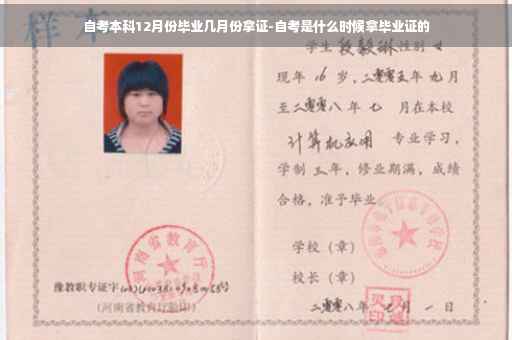 自考本科12月份毕业几月份拿证-自考是什么时候拿毕业证的
样本
学生段毅琳性别女
现年16岁,二零零五年九月
至二零零八年七月在本校
计算机应用 专业学习,
学制三年,修业期满,成绩
合格,准予毕业
学校(章)
校长(章)
二零零八年七月一日
河南省教育厅
豫教职专证字
(河南省教育厅验印)